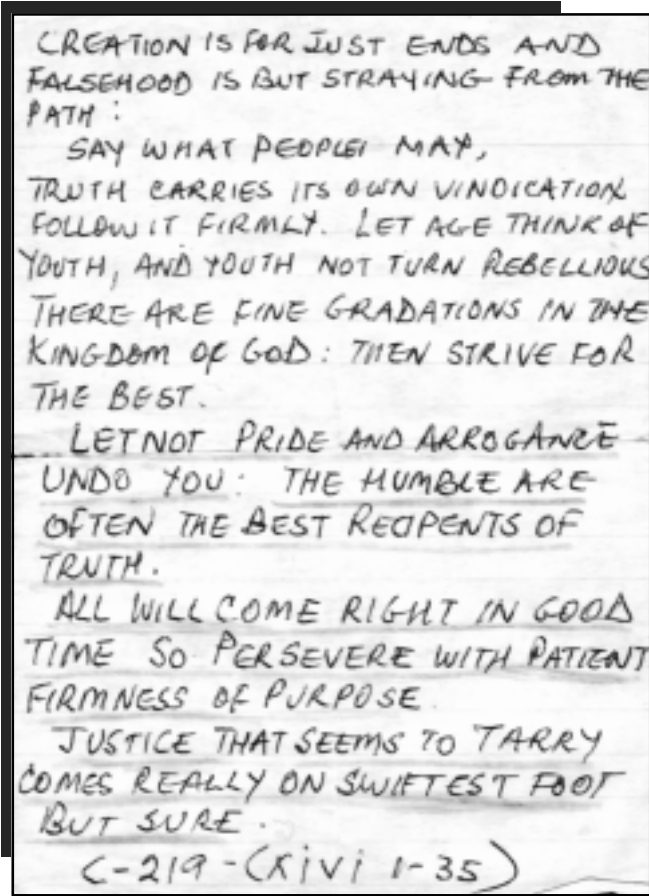 CREATION IS FOR JUST ENDS AND
FALSEHOOD IS BUT STRAYING FROM THE
PATH:
SAY WHAT PEOPLE MAY,
TRUTH CARRIES ITS OWN VINDICATION
FOLLOW IT FIRMLY. LET AGE THINK OF
YOUTH, AND YOUTH NOT TURN REBELLIOUS
THERE ARE FINE GRADATIONS IN THE
KINGDOM OF GOD: THEN STRIVE FOR
THE BEST.
LET NOT PRIDE AND ARROGANCE
UNDO YOU: THE HUMBLE ARE
OFTEN THE BEST RECIPENTS OF
TRUTH.
ALL WILL COME RIGHT IN GOOD
TIME SO PERSEVERE WITH PATIENT
FIRMNESS OF PURPOSE.
JUSTICE THAT SEEMS TO TARRY
COMES REALLY ON SWIFTEST FOOT
BUT SURE.
C-219-(XiVi 1-35)